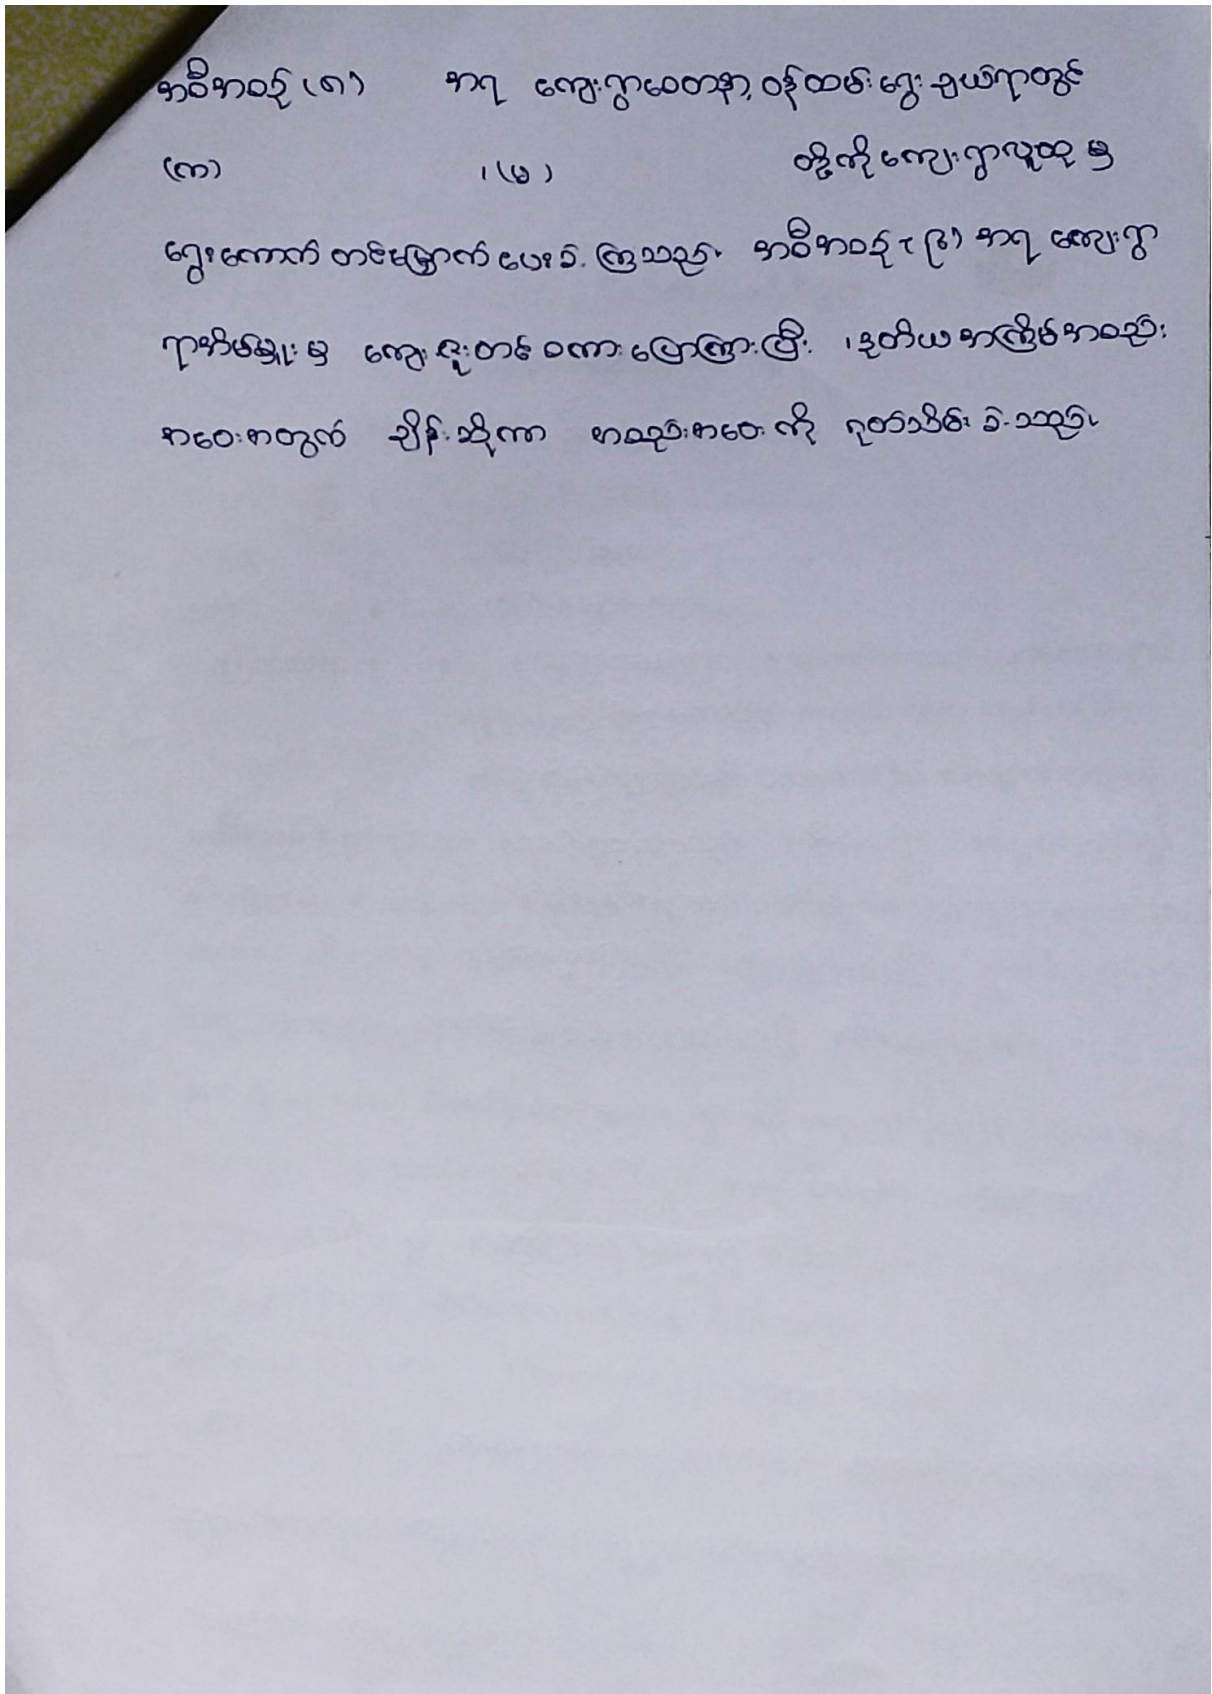 အစီအစဉ် (၈) အရ ကျေးရွာစေတနာ့ဝန်ထမ်းရွေးချယ်ရာတွင်
(က) ၊ (ခ) တို့ကို ကျေးရွာလူထုမှ
ရွေးကောက်တင်မြှောက်ပေးခဲ့ကြသည်။ အစီအစဉ် (၉) အရ ကျေးရွာ
ရာအိမ်မှူးမှ ကျေးဇူးတင်စကားပြောကြားပြီး ၊ ဒုတိယအကြိမ်အစည်း
အဝေးအတွက် ချိန်းဆိုကာ အစည်းအဝေးကို ရုတ်သိမ်းခဲ့သည်။